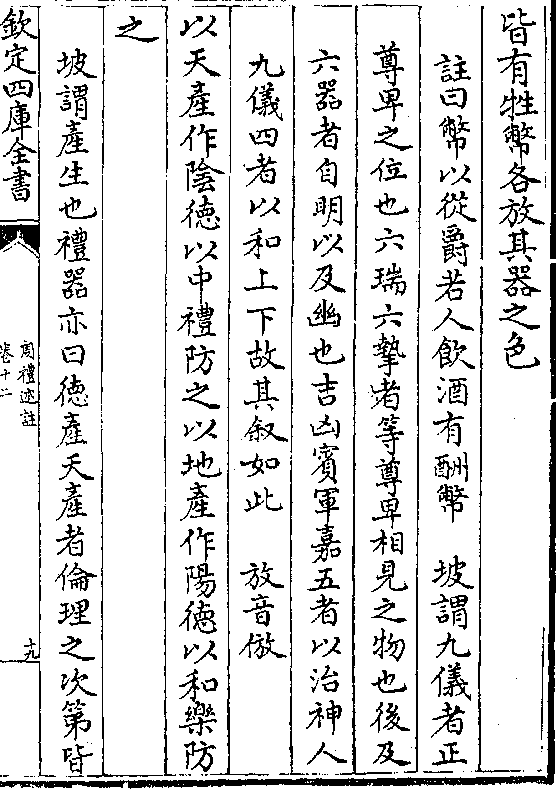 皆有牲幣各放其器之色
註曰幣以從爵若人飲酒有酬幣　坡謂九儀者正
尊卑之位也六瑞六摯者等尊卑相見之物也後及
六器者自明以及幽也吉凶賓軍嘉五者以治神人
九儀四者以和上下故其叙如此　放音倣
以天產作陰德以中禮防之以地產作陽德以和樂防
之
坡謂產生也禮器亦曰德產天產者倫理之次第皆
欽定四庫全書
周禮述註
卷十二
十九